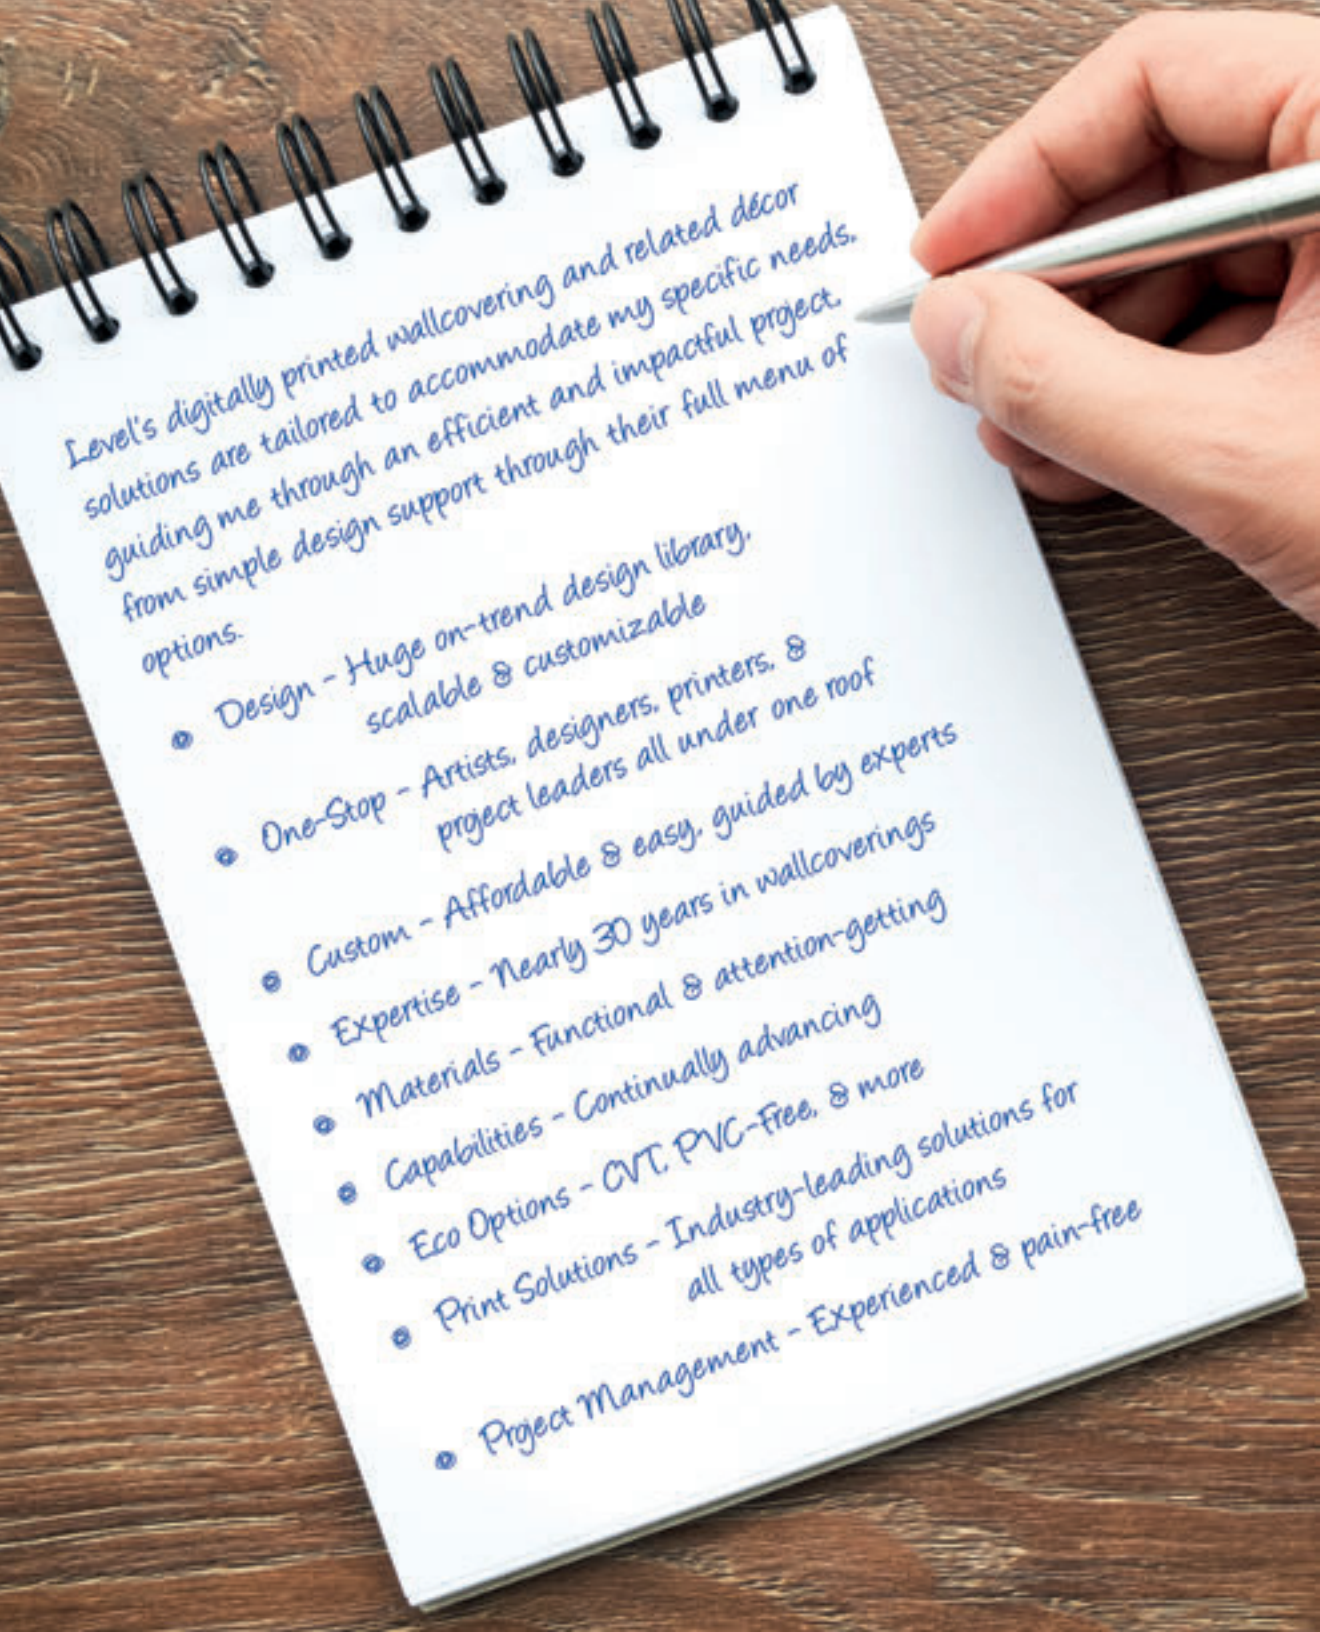 Level's digitally printed wallcovering and related décor
solutions are tailored to accommodate my specific needs,
guiding me through an efficient and impactful project,
from simple design support through their full menu of
options.
• Design - Huge on-trend design library,
scalable & customizable
• One-Stop - Artists, designers, printers, &
project leaders all under one roof
• Custom - Affordable & easy, guided by experts
• Expertise - Nearly 30 years in wallcoverings
• Materials - Functional & attention-getting
• Capabilities - Continually advancing
• Eco Options - CVT, PVC-Free, & more
• Print Solutions - Industry-leading solutions for
all types of applications
• Project Management - Experienced & pain-free